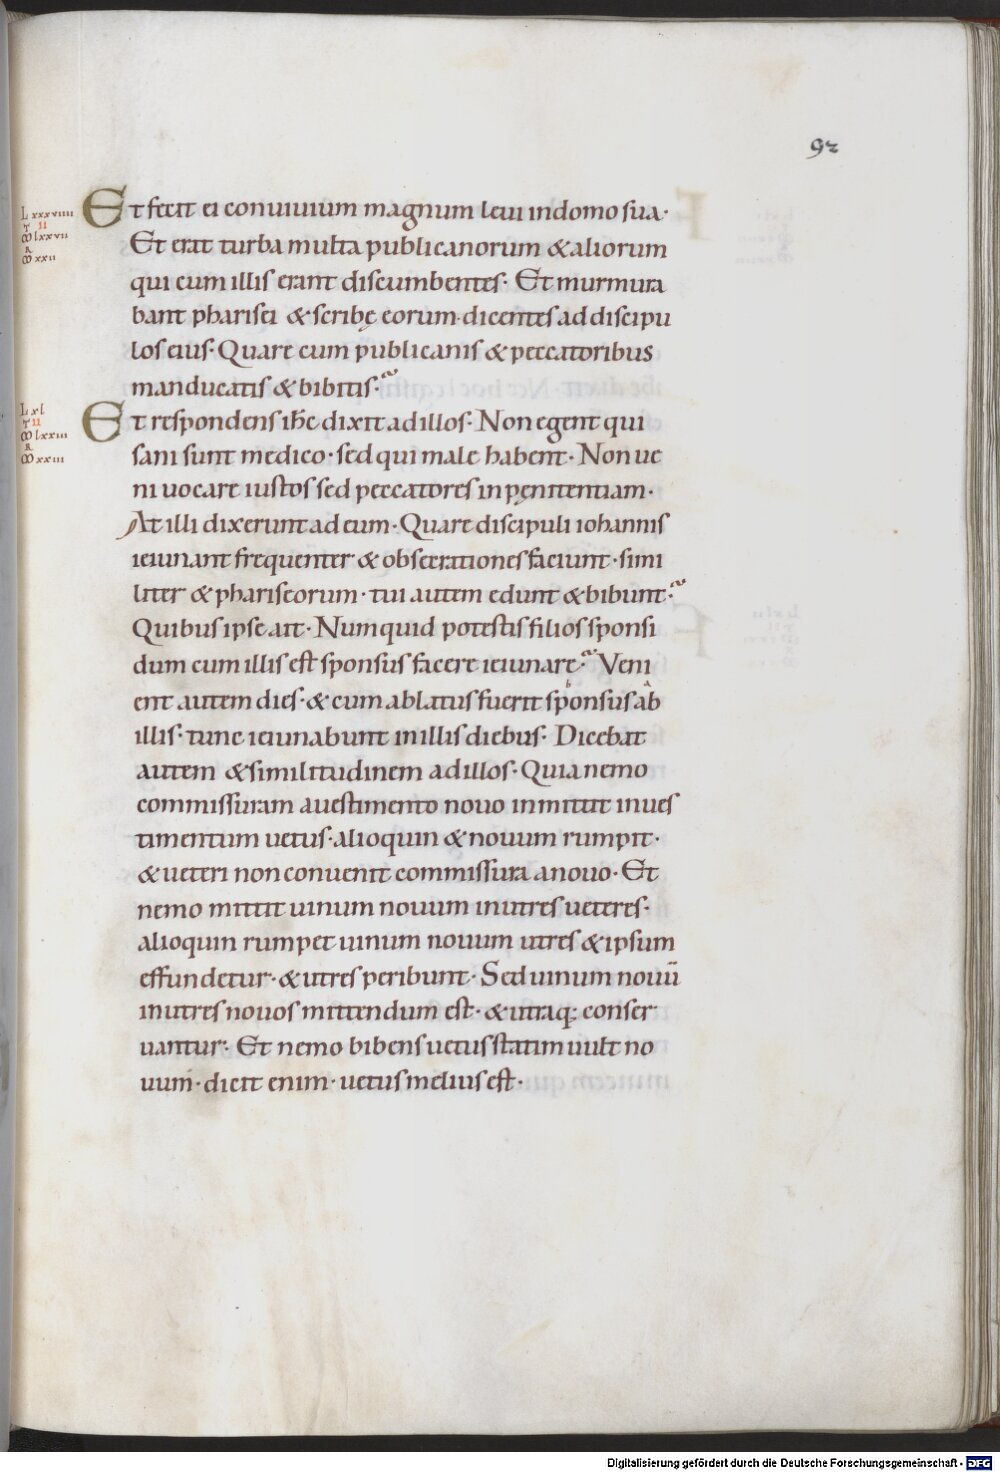 92
L xxxviiii
T II
ꝏ lxxvii
R
ꝏ xxii
Et fecit ei conuiuium magnum leui indomo sua·
Et erat turba multa publicanorum &aliorum
qui cum illis erant discumbentes· Et murmura
bant pharisei &scribę eorum·dicentes addiscipu
los eius· Quare cum publicanis &peccatoribus
manducatis &bibitis·
L xl
T II
ꝏ lxxiii
R
ꝏ xxiii
Et respondens ihc dixit adillos· Non egent qui
sani sunt medico· sed qui male habent· Non ue
ni uocare iustos sed peccatores inpęnitentiam·
At illi dixerunt ad eum· Quare discipuli iohannis
ieiunant frequenter & obsecrationes faciunt· simi
liter & phariseorum· tui autem edunt &bibunt·
Quibus ipse ait· Numquid potestis filios sponsi
dum cum illis est sponsus facere ieiunare· Veni
ent autem dies· &cum ablatus fuerit sponsus ab
illis· tunc ieiunabunt inillis diebus· Dicebat
autem &similitudinem adillos· Quia nemo
commissuram auestimento nouo inmittit inues
timentum uetus· alioquin &nouum rumpit·
&ueteri non conuenit commissura anouo· Et
nemo mittit uinum nouum inutres ueteres·
alioquin rumpet uinum nouum utres &ipsum
effundetur· &utres peribunt· Sed uinum nouū
inutres nouos mittendum est· &utraq; conser
uantur· Et nemo bibens uetus statim uult no
uum· dicit enim· uetus melius est·
Digitalisierung gefördert durch die Deutsche Forschungsgemeinschaft - DFG